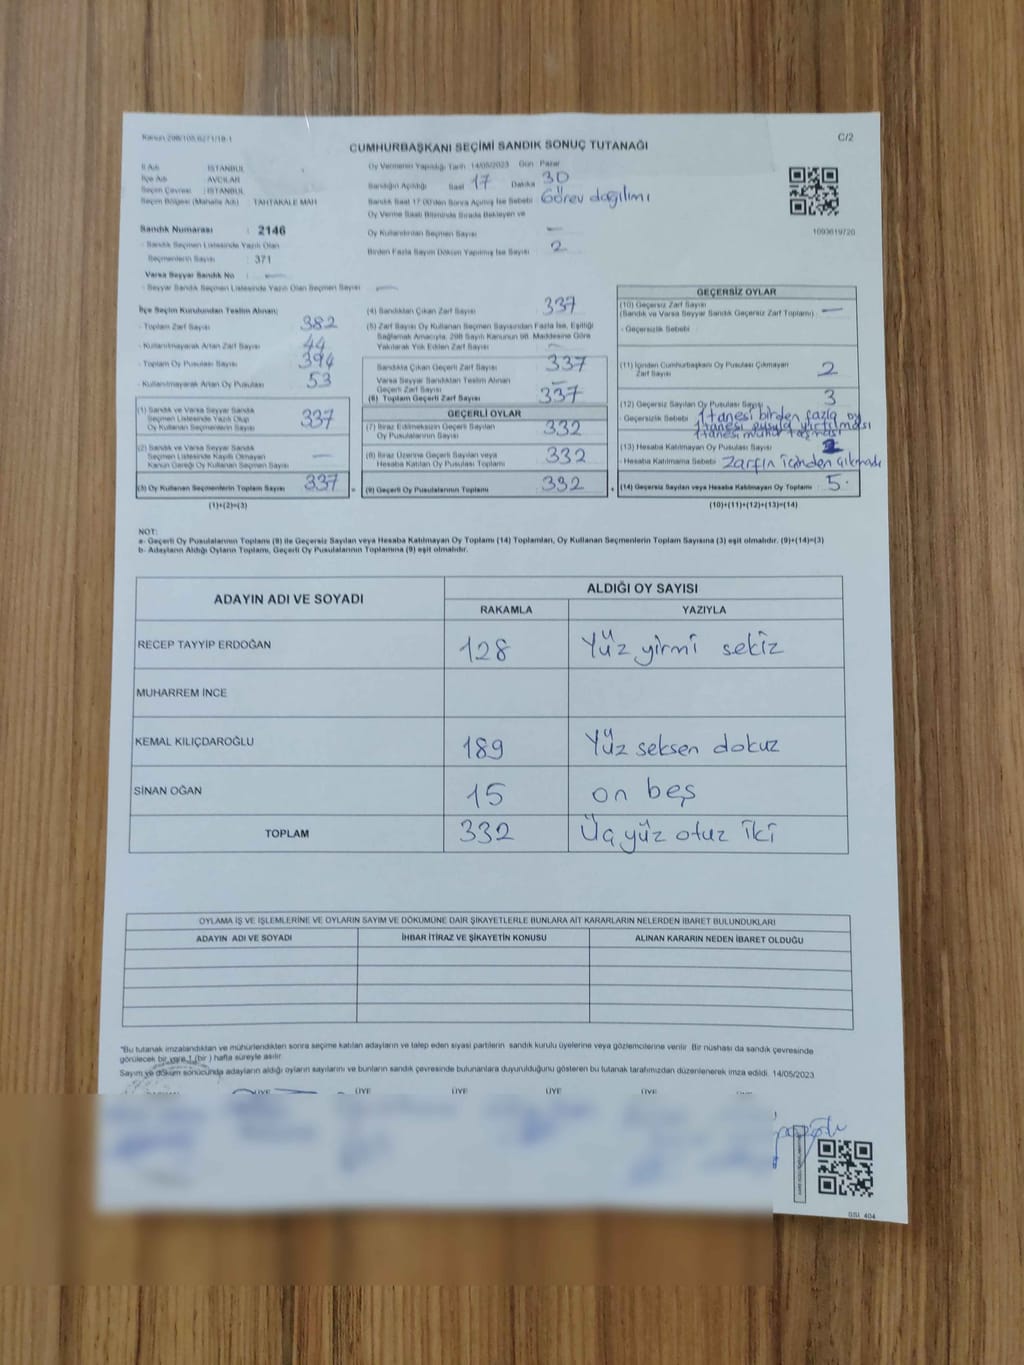 Kanun 298/105,6271/18-1
C/2
CUMHURBAŞKANI SEÇİMİ SANDIK SONUÇ TUTANAĞI
İl Adı : İSTANBUL
İlçe Adı : AVCILAR
Seçim Çevresi : İSTANBUL
Seçim Bölgesi (Mahalle Adı) : TAHTAKALE MAH
Sandık Numarası : 2146
- Sandık Seçmen Listesinde Yazılı Olan
Seçmenlerin Sayısı : 371
Varsa Seyyar Sandık No : —
- Seyyar Sandık Seçmen Listesinde Yazılı Olan Seçmen Sayısı : —
Oy Vermenin Yapıldığı Tarih : 14/05/2023 Gün : Pazar
Sandığın Açıldığı Saat 17 Dakika 30
Sandık Saat 17:00'den Sonra Açılmış İse Sebebi : Görev dağılımı
Oy Verme Saati Bitiminde Sırada Bekleyen ve
Oy Kullandırılan Seçmen Sayısı : —
Birden Fazla Sayım Döküm Yapılmış İse Sayısı : 2
1093619720
İlçe Seçim Kurulundan Teslim Alınan;
- Toplam Zarf Sayısı : 382
- Kullanılmayarak Artan Zarf Sayısı : 44
- Toplam Oy Pusulası Sayısı : 394
- Kullanılmayarak Artan Oy Pusulası : 53
(1) Sandık ve Varsa Seyyar Sandık
Seçmen Listesinde Yazılı Olup
Oy Kullanan Seçmenlerin Sayısı : 337
(2) Sandık ve Varsa Seyyar Sandık
Seçmen Listesinde Kayıtlı Olmayan
Kanun Gereği Oy Kullanan Seçmen Sayısı : —
(3) Oy Kullanan Seçmenlerin Toplam Sayısı : 337 =
(1)+(2)=(3)
(4) Sandıktan Çıkan Zarf Sayısı : 337
(5) Zarf Sayısı Oy Kullanan Seçmen Sayısından Fazla İse, Eşitliği
Sağlamak Amacıyla, 298 Sayılı Kanunun 98. Maddesine Göre
Yakılarak Yok Edilen Zarf Sayısı : —
Sandıkta Çıkan Geçerli Zarf Sayısı : 337
Varsa Seyyar Sandıktan Teslim Alınan
Geçerli Zarf Sayısı : —
(6) Toplam Geçerli Zarf Sayısı : 337
GEÇERLİ OYLAR
(7) İtiraz Edilmeksizin Geçerli Sayılan
Oy Pusulalarının Sayısı : 332
(8) İtiraz Üzerine Geçerli Sayılan veya
Hesaba Katılan Oy Pusulası Toplamı : 332
(9) Geçerli Oy Pusulalarının Toplamı : 332 +
GEÇERSİZ OYLAR
(10) Geçersiz Zarf Sayısı
(Sandık ve Varsa Seyyar Sandık Geçersiz Zarf Toplamı) : —
- Geçersizlik Sebebi :
(11) İçinden Cumhurbaşkanı Oy Pusulası Çıkmayan
Zarf Sayısı : 2
(12) Geçersiz Sayılan Oy Pusulası Sayısı : 3
Geçersizlik Sebebi : 1 tanesi birden fazla oy
1 tanesi pusula yırtılması
1 tanesi mühür taşması
(13) Hesaba Katılmayan Oy Pusulası Sayısı : 2
- Hesaba Katılmama Sebebi : Zarfın içinden çıkmadı
(14) Geçersiz Sayılan veya Hesaba Katılmayan Oy Toplamı : 5
(10)+(11)+(12)+(13)=(14)
NOT:
a- Geçerli Oy Pusulalarının Toplamı (9) ile Geçersiz Sayılan veya Hesaba Katılmayan Oy Toplamı (14) Toplamları, Oy Kullanan Seçmenlerin Toplam Sayısına (3) eşit olmalıdır. (9)+(14)=(3)
b- Adayların Aldığı Oyların Toplamı, Geçerli Oy Pusulalarının Toplamına (9) eşit olmalıdır.
ADAYIN ADI VE SOYADI
ALDIĞI OY SAYISI
RAKAMLA YAZIYLA
RECEP TAYYİP ERDOĞAN 128 Yüz yirmi sekiz
MUHARREM İNCE
KEMAL KILIÇDAROĞLU 189 Yüz seksen dokuz
SİNAN OĞAN 15 on beş
TOPLAM 332 Üç yüz otuz iki
OYLAMA İŞ VE İŞLEMLERİNE VE OYLARIN SAYIM VE DÖKÜMÜNE DAİR ŞİKAYETLERLE BUNLARA AİT KARARLARIN NELERDEN İBARET BULUNDUKLARI
ADAYIN ADI VE SOYADI İHBAR İTİRAZ VE ŞİKAYETİN KONUSU ALINAN KARARIN NEDEN İBARET OLDUĞU
"Bu tutanak imzalandıktan ve mühürlendikten sonra seçime katılan adayların ve talep eden siyasi partilerin sandık kurulu üyelerine veya gözlemcilerine verilir. Bir nüshası da sandık çevresinde
görülecek bir yere 1 (bir) hafta süreyle asılır.
Sayım ve döküm sonucunda adayların aldığı oyların sayılarını ve bunların sandık çevresinde bulunanlara duyurulduğunu gösteren bu tutanak tarafımızdan düzenlenerek imza edildi. 14/05/2023
BAŞKAN ÜYE ÜYE ÜYE ÜYE ÜYE ÜYE
GSI_404